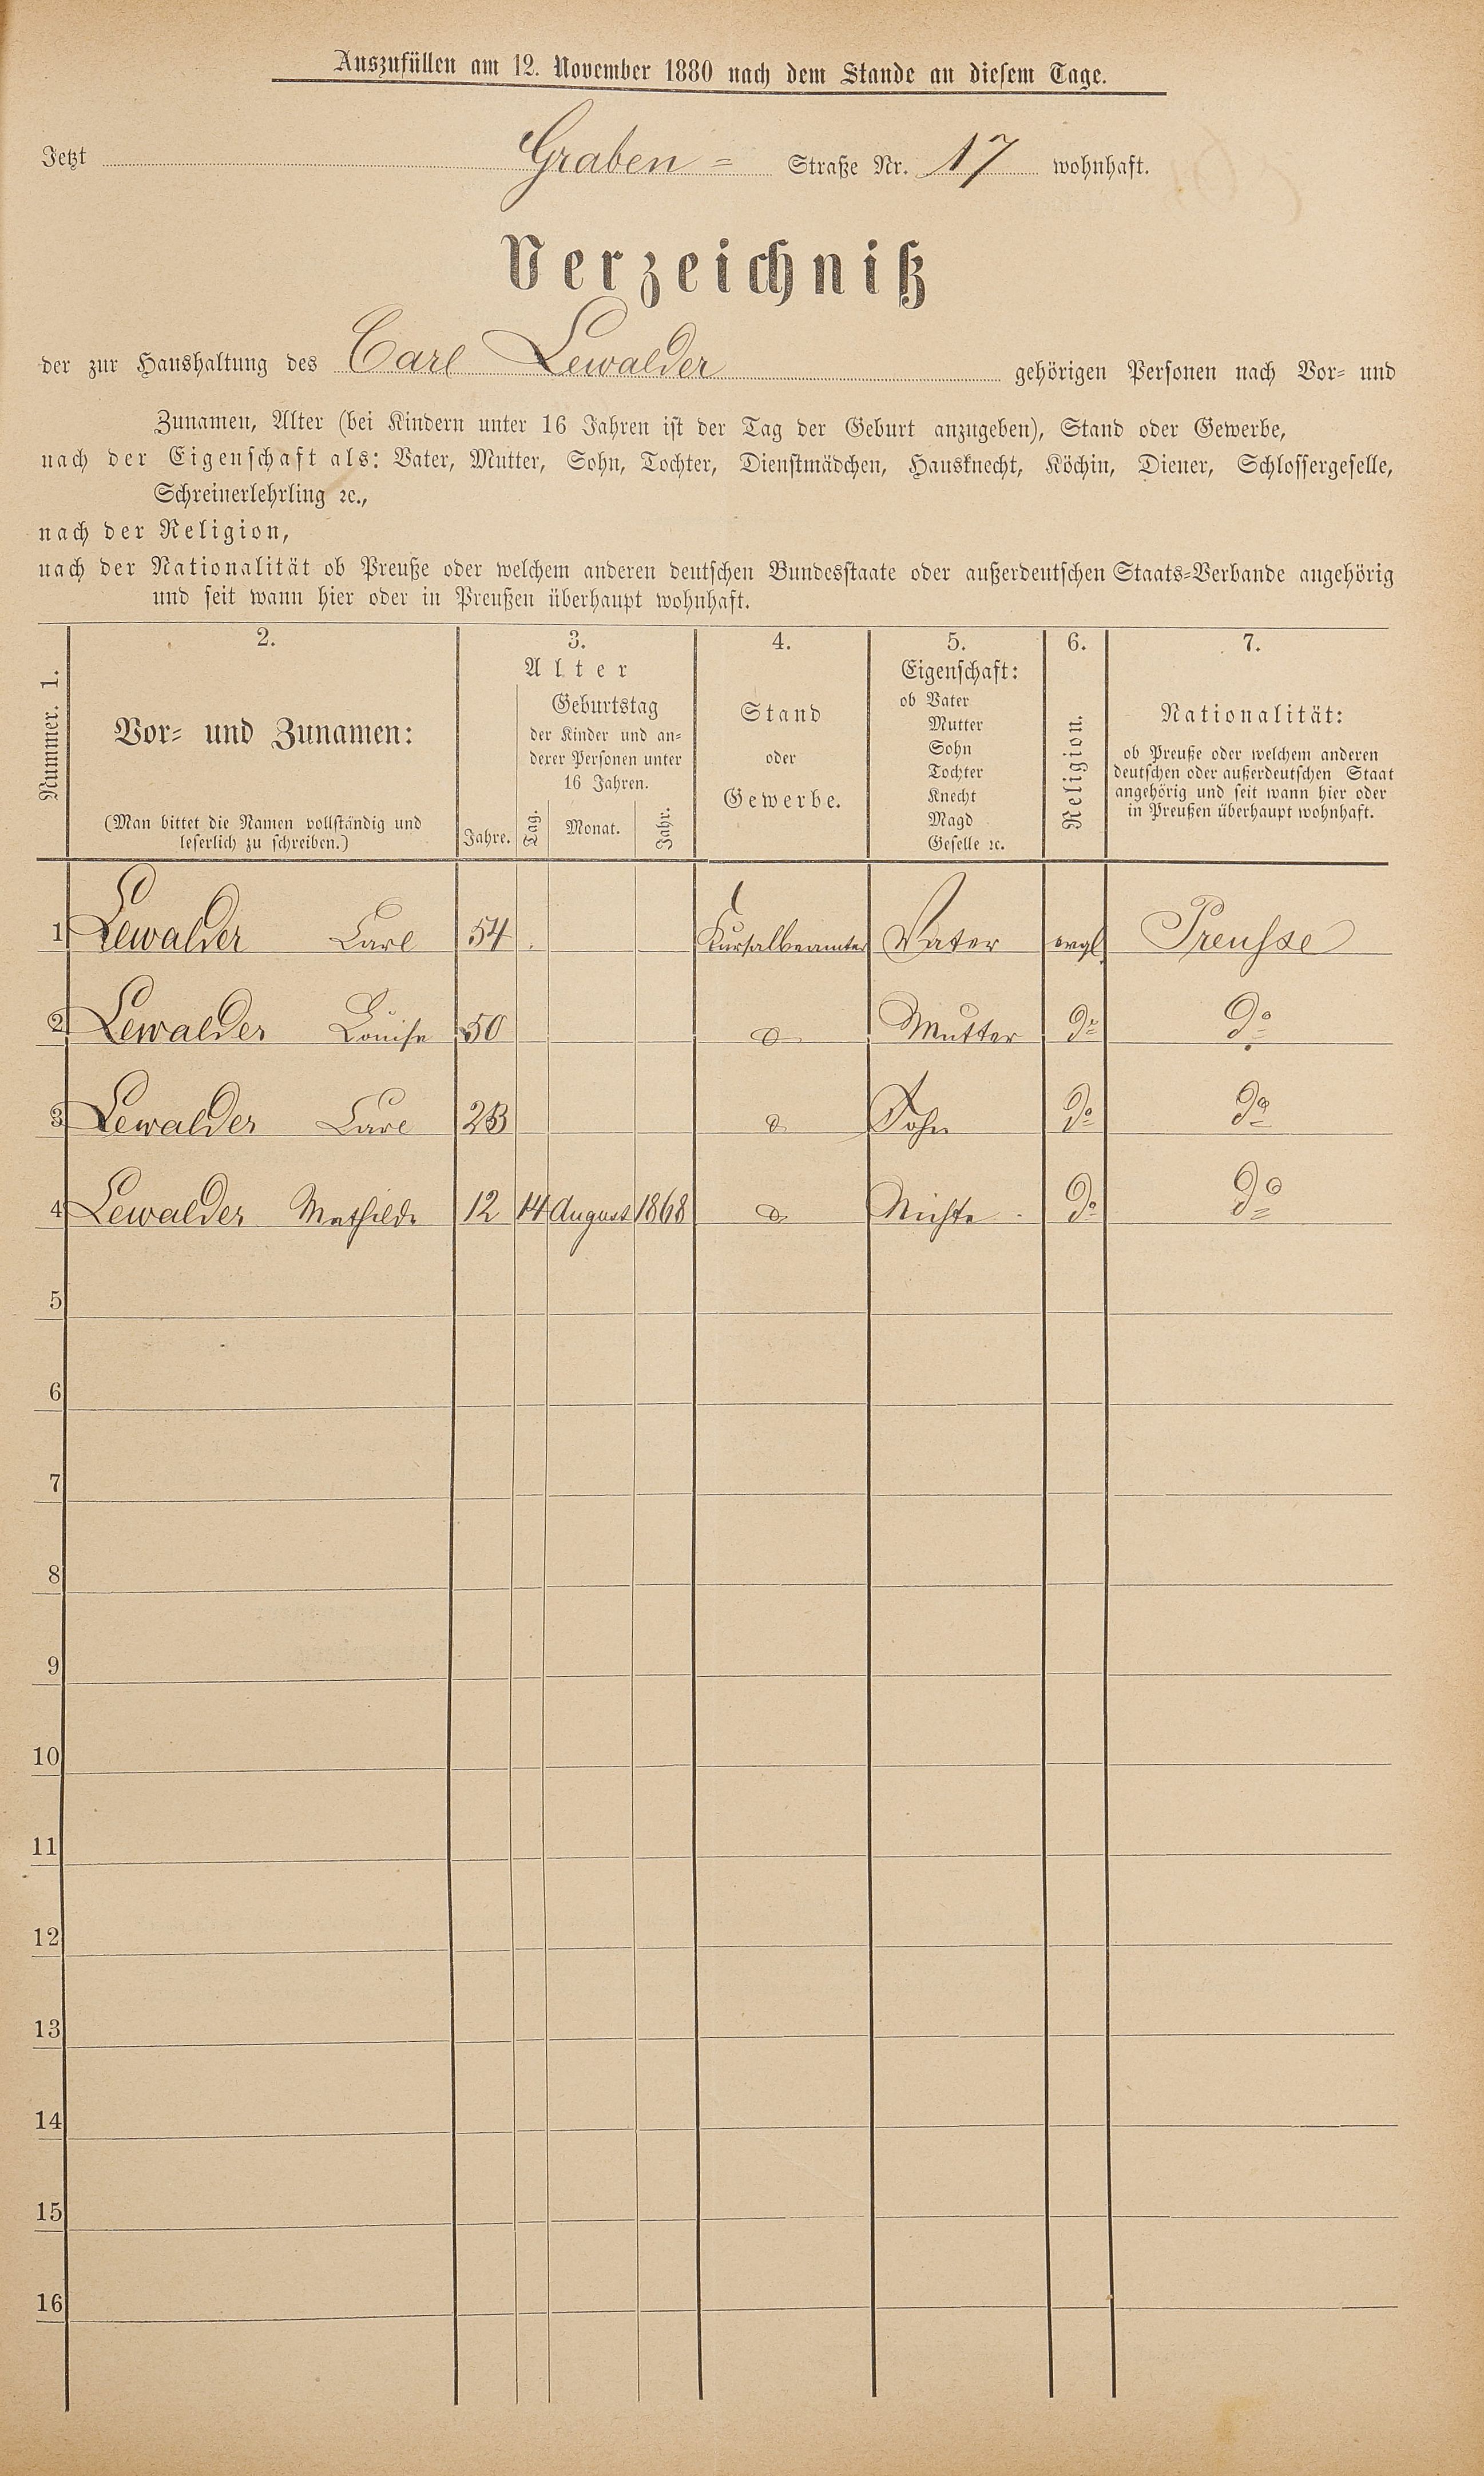 Auszufüllen am 12. November 1880 nach dem Stande an diesem Tage.
Jetzt Graben= Straße Nr. 17 wohnhaft.
Verzeichniß
der zur Haushaltung des Carl Lewalder gehörigen Personen nach Vor- und
Zunamen, Alter (bei Kindern unter 16 Jahren ist der Tag der Geburt anzugeben), Stand oder Gewerbe,
nach der Eigenschaft als: Vater, Mutter, Sohn, Tochter, Dienstmädchen, Hausknecht, Köchin, Diener, Schlossergeselle,
Schreinerlehrling ꝛc.,
nach der Religion,
nach der Nationalität ob Preuße oder welchem anderen deutschen Bundesstaate oder außerdeutschen Staats-Verbande angehörig
und seit wann hier oder in Preußen überhaupt wohnhaft.
Nummer. 1.
2.
Vor- und Zunamen:
(Man bittet die Namen vollständig und
leserlich zu schreiben.)
3.
Alter
Jahre.
Geburtstag
der Kinder und an-
derer Personen unter
16 Jahren.
Tag. Monat. Jahr.
4.
Stand
oder
Gewerbe.
5.
Eigenschaft:
ob Vater
Mutter
Sohn
Tochter
Knecht
Magd
Geselle ꝛc.
6.
Religion.
7.
Nationalität:
ob Preuße oder welchem anderen
deutschen oder außerdeutschen Staat
angehörig und seit wann hier oder
in Preußen überhaupt wohnhaft.
1 Lewalder Carl 54 Kursalbeamter Vater evgl. Preusse
2 Lewalder Louise 50 Mutter do do
3 Lewalder Carl 23 Sohn do do
4 Lewalder Mathilde 12 14 August 1868 Nichte do do
5
6
7
8
9
10
11
12
13
14
15
16